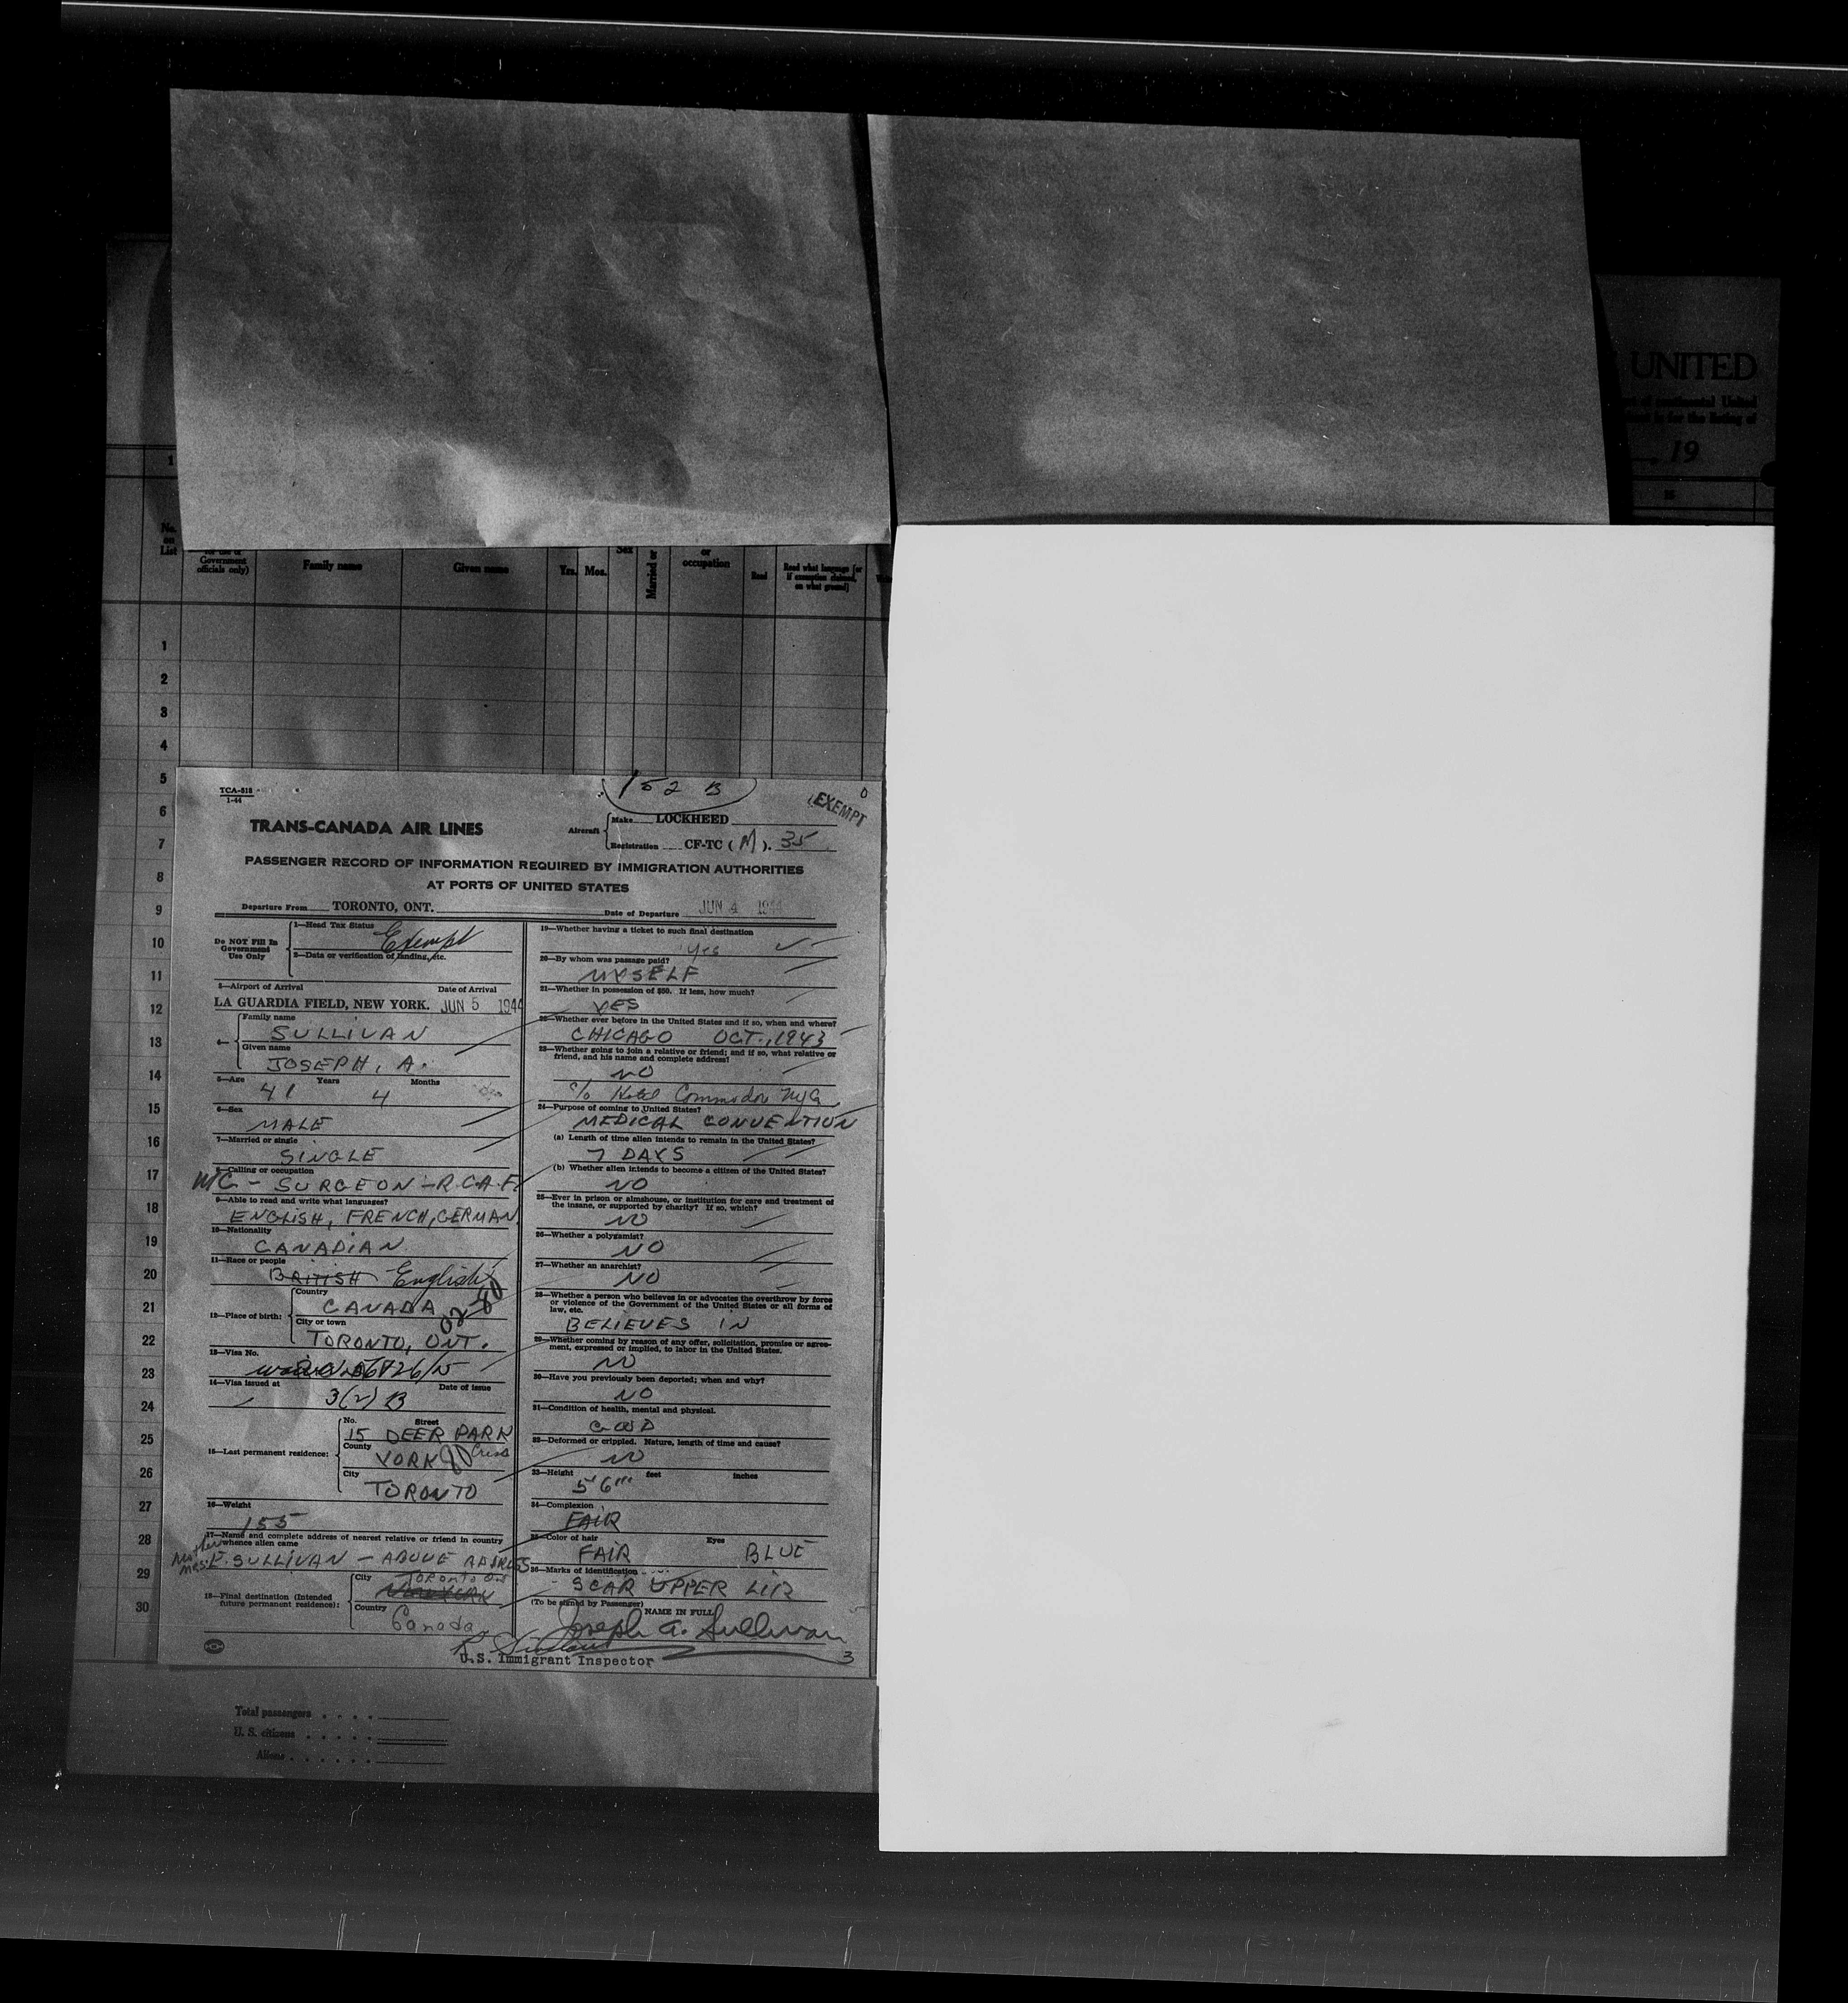 UNITED
of continental United
is for the listing of
19
1
16
No.
on
List
Government
officials only)
Family name
Given name
Yrs. Mos.
Sex
Married or
or
occupation
Read
Read what language [or
if exemption claimed,
on what ground]
1
2
3
4
5
6
7
8
9
10
11
12
13
14
15
16
17
18
19
20
21
22
23
24
25
26
27
28
29
30
TCA-518
1-44
152 B
0
EXEMPT
TRANS-CANADA AIR LINES
Aircraft
Make LOCKHEED
Registration CF-TC (M). 35
PASSENGER RECORD OF INFORMATION REQUIRED BY IMMIGRATION AUTHORITIES
AT PORTS OF UNITED STATES
Departure From TORONTO, ONT. Date of Departure JUN 4 1944
Do NOT Fill In
Government
Use Only
1—Head Tax Status
Exempt
2—Data or verification of landing, etc.
3—Airport of Arrival Date of Arrival
LA GUARDIA FIELD, NEW YORK. JUN 5 1944
4—
Family name
SULLIVAN
Given name
JOSEPH, A.
5—Age Years Months
41 4
6—Sex
MALE
7—Married or single
SINGLE
8—Calling or occupation
W/C - SURGEON - R.C.A.F.
9—Able to read and write what languages?
ENGLISH, FRENCH, GERMAN
10—Nationality
CANADIAN
11—Race or people
BRITISH English
12—Place of birth:
Country
CANADA
City or town
TORONTO, ONT.
13—Visa No.
14—Visa issued at Date of issue
3(2) B
15—Last permanent residence:
No. Street
15 DEER PARK
Cres
County
YORK
City
TORONTO
16—Weight
155
17—Name and complete address of nearest relative or friend in country
whence alien came
Mother
Mrs. E. SULLIVAN - ABOVE ADDRESS
18—Final destination (Intended
future permanent residence):
City
Toronto Ont
Country
Canada
19—Whether having a ticket to such final destination
Yes
20—By whom was passage paid?
MYSELF
21—Whether in possession of $50. If less, how much?
YES
22—Whether ever before in the United States and if so, when and where?
CHICAGO OCT., 1943
23—Whether going to join a relative or friend; and if so, what relative or
friend, and his name and complete address?
NO
c/o Hotel Commodore NYC
24—Purpose of coming to United States?
MEDICAL CONVENTION
(a) Length of time alien intends to remain in the United States?
7 DAYS
(b) Whether alien intends to become a citizen of the United States?
NO
25—Ever in prison or almshouse, or institution for care and treatment of
the insane, or supported by charity? If so, which?
NO
26—Whether a polygamist?
NO
27—Whether an anarchist?
NO
28—Whether a person who believes in or advocates the overthrow by force
or violence of the Government of the United States or all forms of
law, etc.
BELIEVES IN
29—Whether coming by reason of any offer, solicitation, promise or agree-
ment, expressed or implied, to labor in the United States.
NO
30—Have you previously been deported; when and why?
NO
31—Condition of health, mental and physical.
GOOD
32—Deformed or crippled. Nature, length of time and cause?
NO
33—Height feet inches
5' 6"
34—Complexion
FAIR
35—Color of hair Eyes
FAIR BLUE
36—Marks of identification
SCAR UPPER LIP
(To be signed by Passenger)
NAME IN FULL
Joseph A. Sullivan
U.S. Immigrant Inspector
3
Total passengers
U. S. citizens
Aliens